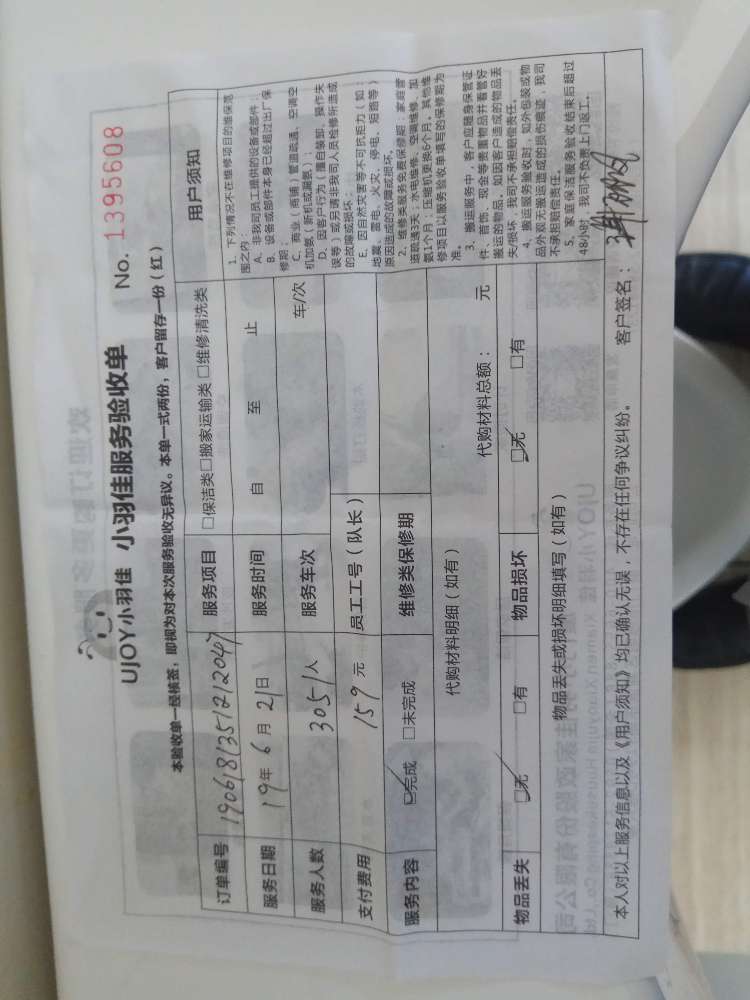 UJOY小羽佳 小羽佳服务验收单 No. 1395608
本验收单一经核签，即视为对本次服务验收无异议。本单一式两份，客户留存一份（红）
订单编号 1906181351212047 服务项目 □保洁类□搬家运输类 □维修清洗类
服务日期 19年 6 月 21日 服务时间 自 至 止
服务人数 3051人 服务车次 车/次
支付费用 159 元 员工工号（队长）
服务内容 ☑完成 □未完成 维修类保修期
代购材料明细（如有） 代购材料总额： 元
物品丢失 ☑无 □有 物品损坏 ☑无 □有
物品丢失或损坏明细填写（如有）
用户须知
1、下列情况不在维修项目的维保范
围之内：
A、非我司员工提供的设备或部件；
B、设备或部件本身已经超过出厂保
修期；
C、商业（商铺）管道疏通、空调空
机加氨、新机或漏氨）；
D、因客户行为（擅自装卸、操作失
误等）或另请非我司人员检修所造成
的故障或损坏；
E、因自然灾害等不可抗拒力（如：
地震、雷电、火灾、停电、短路等）
原因造成的故障或损坏。
2、维修类服务免费保修期：家庭管
道疏通3天；水电维修、空调维修、加
氨1个月；压缩机更换6个月。其他维
修项目以服务验收单填写的保修期为
准。
3、搬运服务中，客户应随身保管证
件、首饰、现金等贵重物品并看管好
搬运的物品，如因客户造成的物品丢
失/损坏，我司不承担赔偿责任。
4、搬运服务验收时，如外包装或物
品外观无搬运造成的损伤痕迹，我司
不承担赔偿责任。
5、家庭保洁服务验收结束后超过
48小时，我司不负责上门返工。
本人对以上服务信息以及《用户须知》均已确认无误，不存在任何争议纠纷。 客户签名：